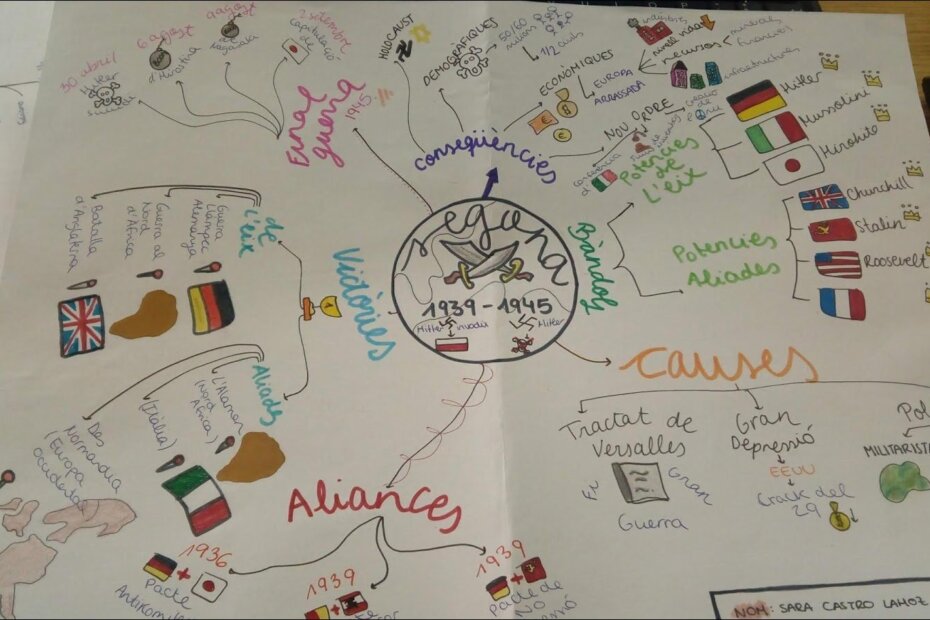 Segona
1939-1945
Hitler invadir
Hitler
Final guerra
1945
30 abril
Hitler
suicidi
6 agost
d'Hiroshima
9 agost
de Nagasaki
2 setembre
Capitulació
de
Conseqüències
HOLOCAUST
DEMOGRÀFIQUES
50/60
milions
1/2 civils
ECONÒMIQUES
EUROPA
ARRASADA
indústries
recursos
minerals
financers
infraestructures
NOU ORDRE
creació
de
Conferència
Bàndols
Potències
de
L'eix
Hitler
Mussolini
Hirohito
Potències
Aliades
Churchill
Stalin
Roosevelt
Causes
Tractat de
Versalles
Fi
Gran
Guerra
Gran
Depressió
EEUU
Crack del
29
Pol
MILITARISTA
Aliances
1936
+
Pacte
1939
+
1939
+
Pacte de
NO
Victòries
de
L'eix
Guerra
Llampec
Alemanya
Guerra al
Nord
d'Àfrica
Batalla
d'Anglaterra
Aliades
L'Alamein
(Nord
Àfrica)
(Itàlia)
Des
Normandia
(Europa
Occidental)
NOM: SARA CASTRO LAHOZ